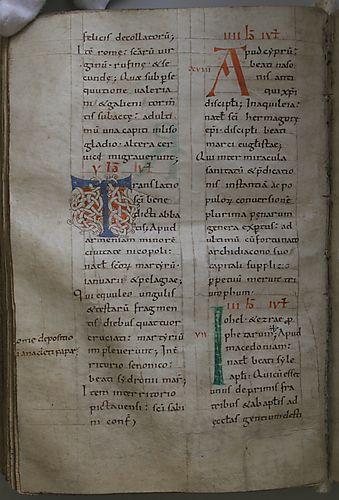 felicis decollatorū;
Itē rome; scārū uir
ginū rufinę & se
cundę; Quę sub pse
quutione ualeria
ni & galieni torm̄
tis subactę; adulti
mū una capiti inliso
gladio; altera cer
uicē migrauerunt;
V ID IVL
Translatio
scī bene
dicti abba
tis; Apud
armeniam minorē
ciuitate nicopoli:
natł scōr martyrū
ianuarii & pelagiae;
Qui equuleo ungulis
& testarū fragmen
tis diebus quattuor
cruciati: martyriū
impleuerunt; In t̄
ritorio senonico:
beati sydronii mar;
Item in territorio
pictauensi: scī sabi
ni conf̄;
IIII ID IVL
XVIII Apud cyprū;
beati naso
nis anti
qui xp̄i
discipłi; In aquileia:
natł scī hermagorę
ep̄i discipłi beati
marci euḡlistae;
Qui inter miracula
sanitatū & p̄dicatio
nis instantia ac po
pulor conuersione
plurima penarum
genera exp̄tus; ad
ultimū cū fortunato
archidiacono suo
capitali supplicio
perpetuū meruit tri
umphum.
III ID IVL
VII Iohel & ezrae p
phetarum; Apud
macedoniam:
natł beati sylę
apłi; Qui cū esset
unus de primis fra
tribus & ab aptis ad
ecctas gentium desti
depositio
anacleti papae;